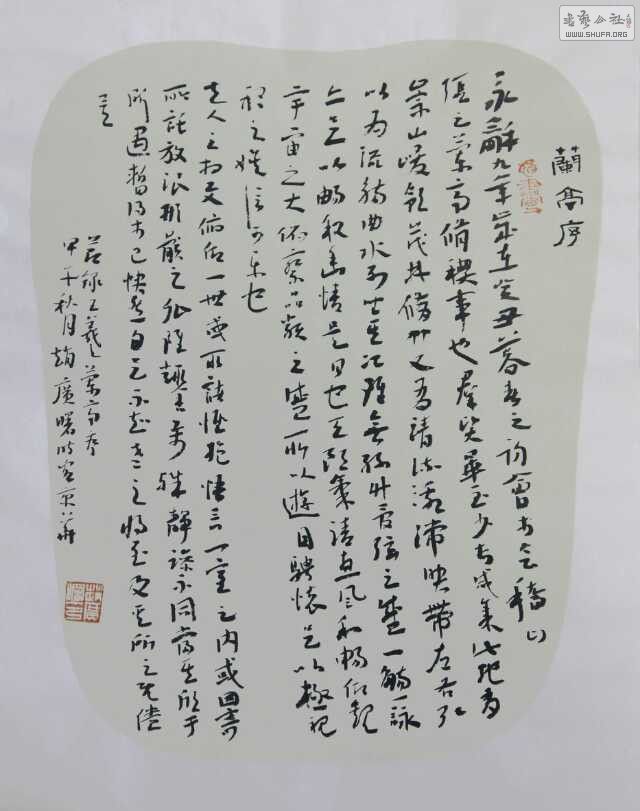 蘭亭序
永龢九年歲在癸丑暮春之初會於會稽山
陰之蘭亭脩禊事也群賢畢至少長咸集此地有
崇山峻領茂林脩竹又有清流激湍映帶左右引
以為流觴曲水列坐其次雖無絲竹管弦之盛一觴一詠
亦足以暢敘幽情是日也天朗氣清惠風和暢仰觀
宇宙之大俯察品類之盛所以遊目騁懷足以極視
聽之娛信可樂也
夫人之相與俯仰一世或取諸懷抱悟言一室之內或因寄
所託放浪形骸之外雖趣舍萬殊靜躁不同當其欣于
所遇暫得於己快然自足不知老之將至及其所之既倦
云
節錄王羲之蘭亭序
甲午秋月趙廣曙時客京華
書藝公社
WWW.SHUFA.ORG